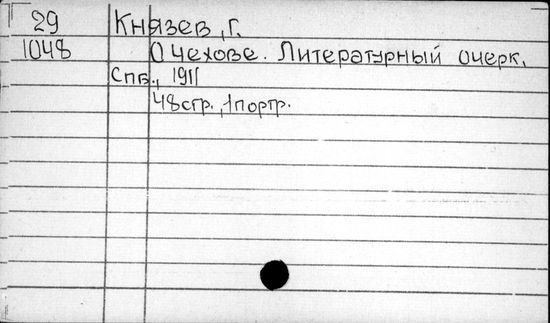 29 Князев, г.
1048 О Чехове. Литературный очерк.
Спб., 1911
48стр., 1портр.